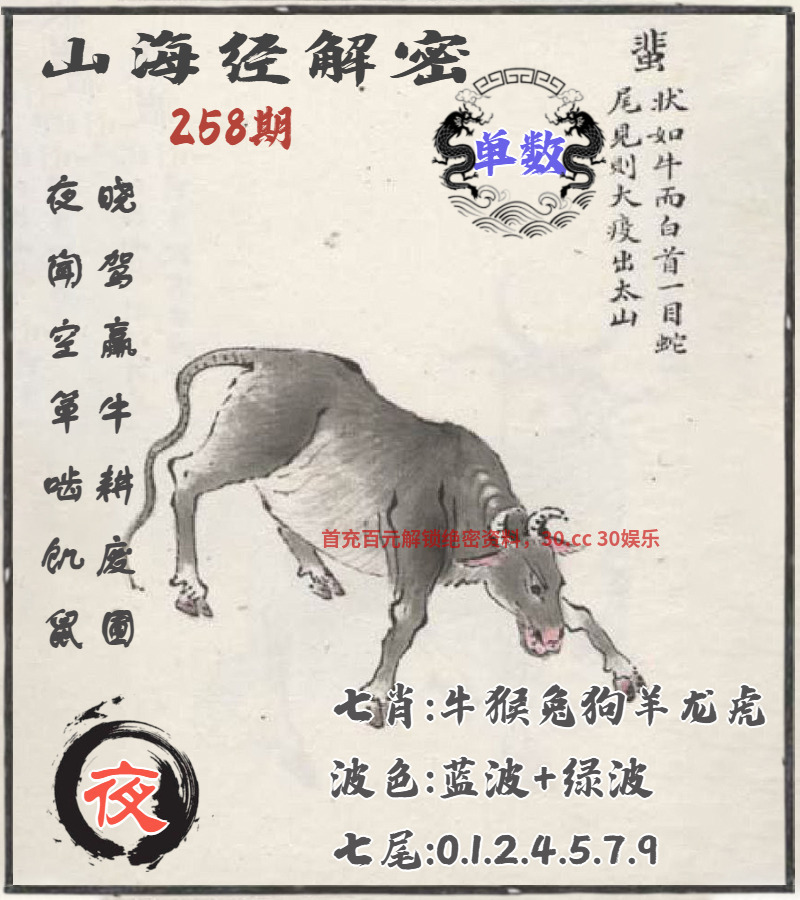 山海经解密
258期
单数
蜚
状如牛而白首一目蛇
尾見则大疫出太山
晓驾羸牛耕废圃
夜闻空箪啮饥鼠
首充百元解锁绝密资料；30.cc 30娱乐
七肖:牛猴兔狗羊龙虎
波色:蓝波+绿波
七尾:0.1.2.4.5.7.9
夜